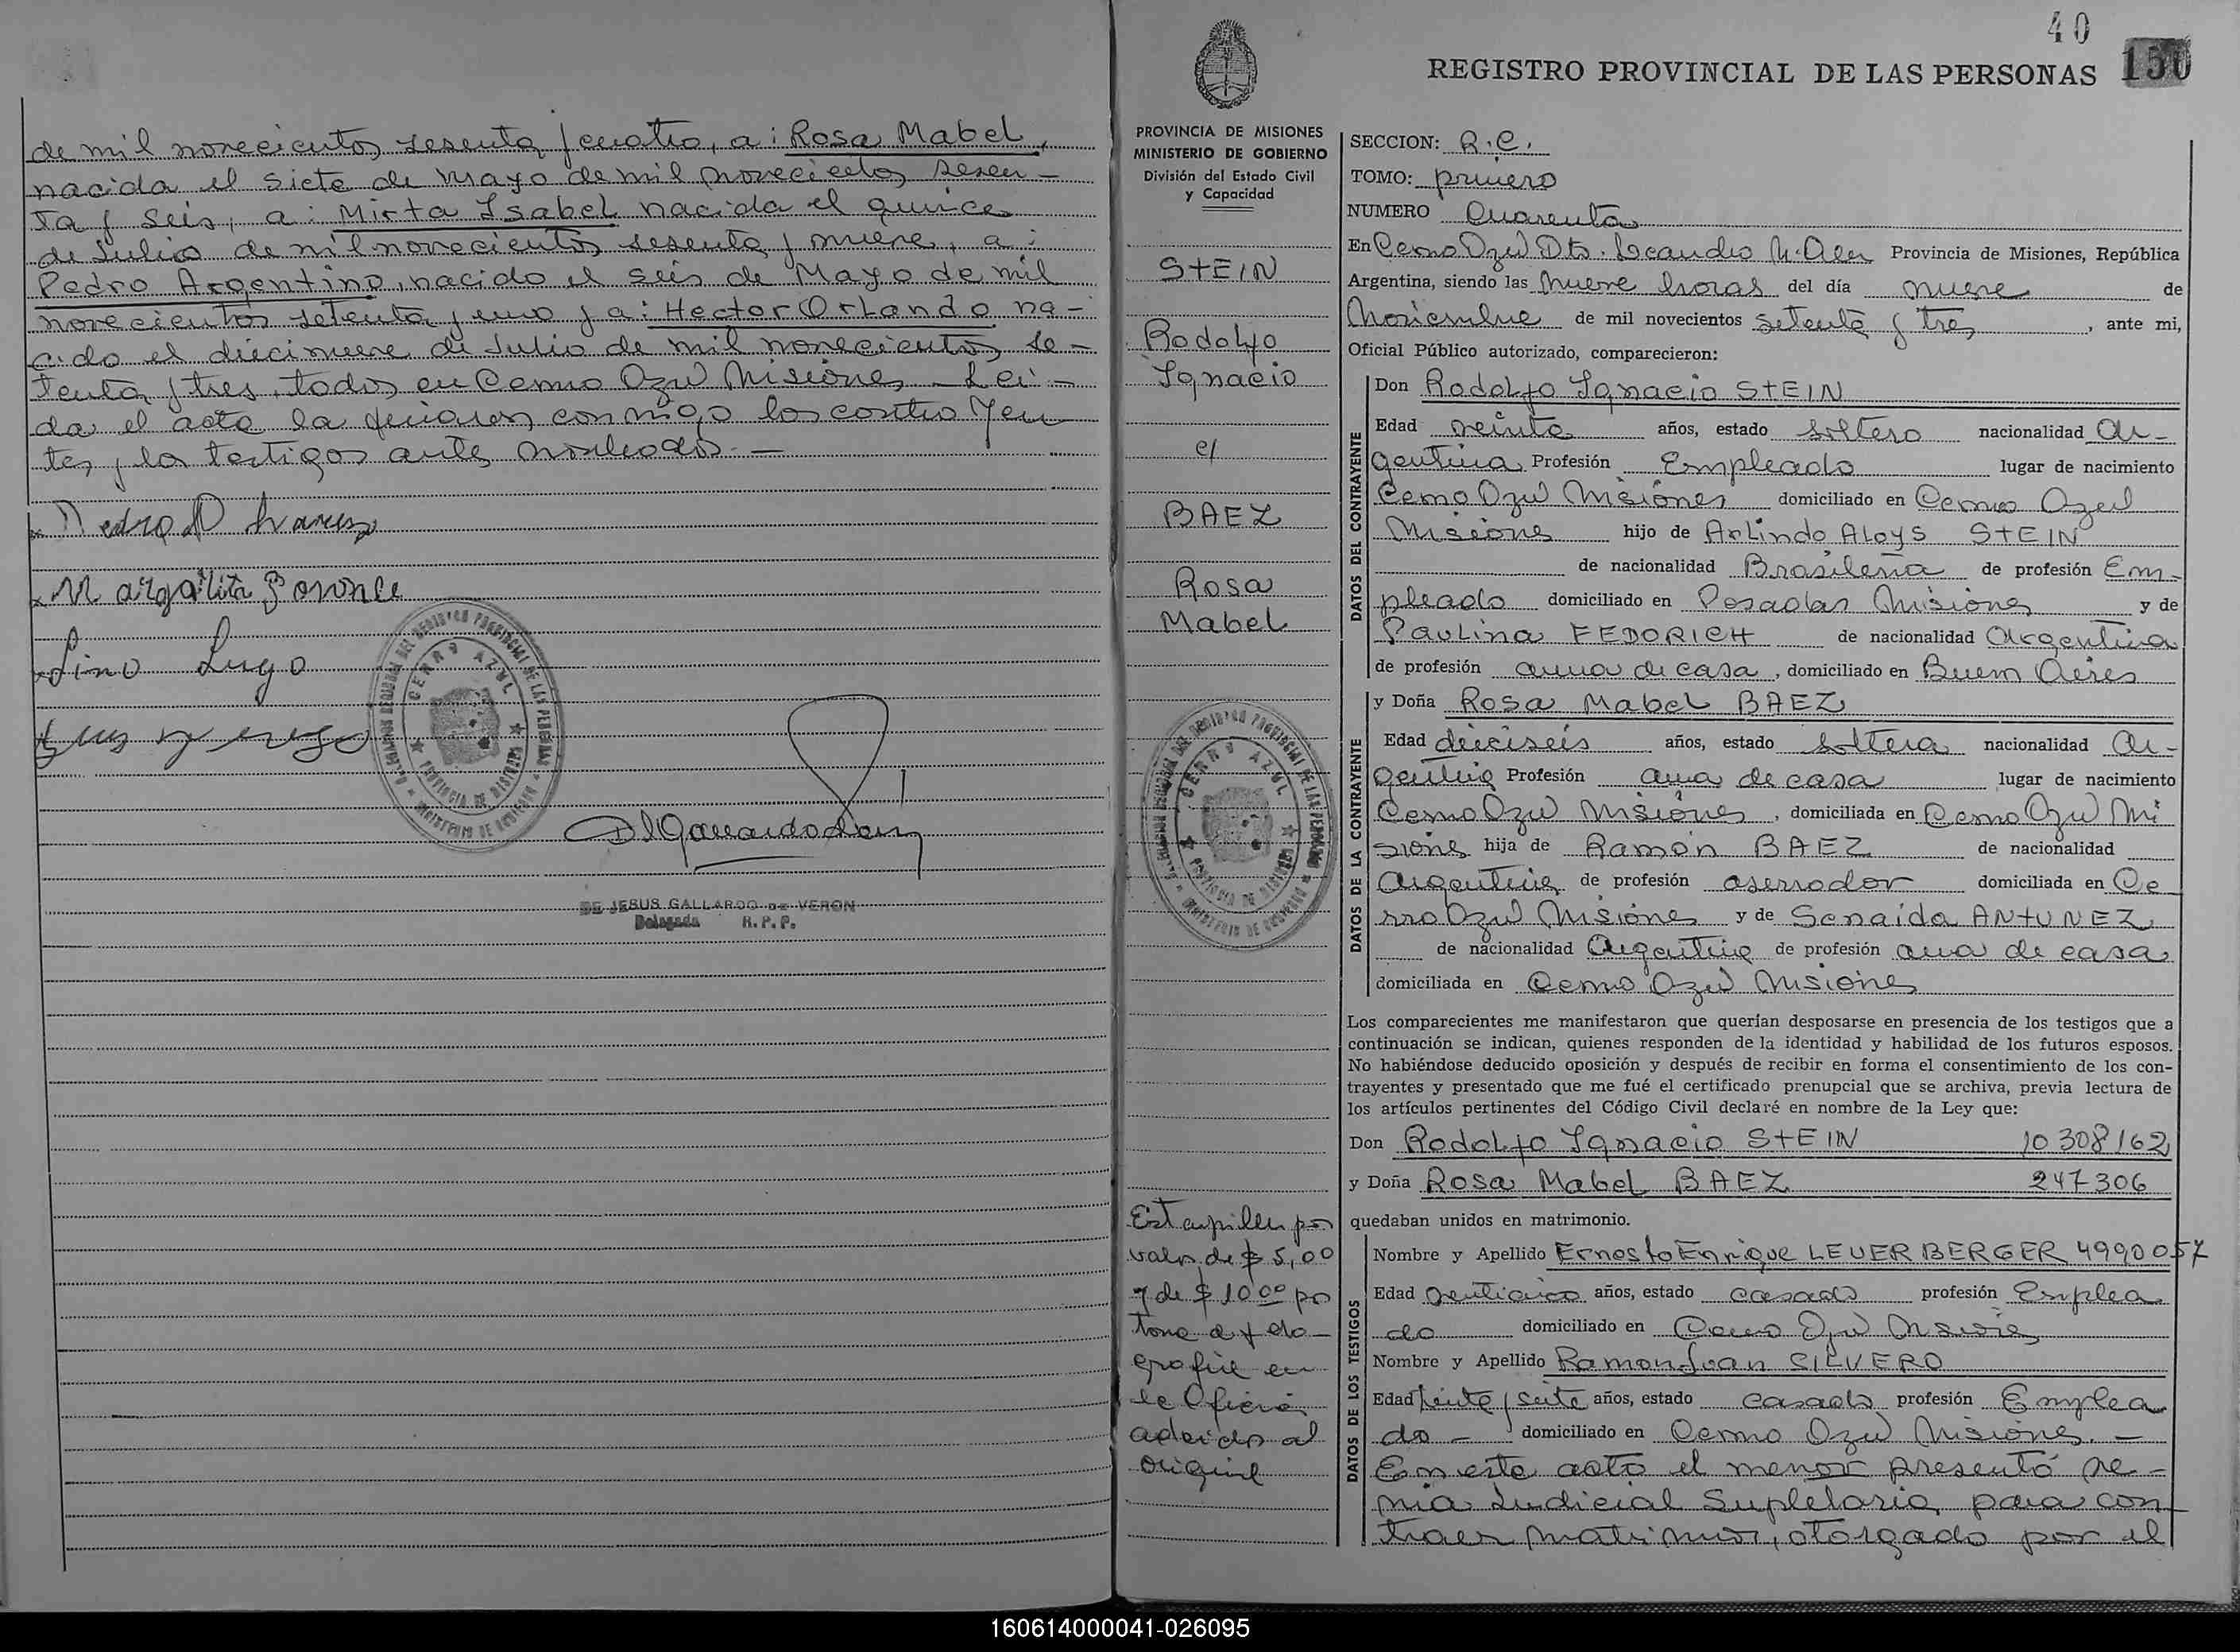 de mil novecientos sesenta y cuatro, a: Rosa Mabel,
nacida el siete de Mayo de mil novecientos sesen-
ta y seis, a: Mirta Isabel nacida el quince
de Julio de mil novecientos sesenta y nueve, a:
Pedro Argentino, nacido el seis de Mayo de mil
novecientos setenta y uno y a: Hector Orlando na-
cido el diecinueve de Julio de mil novecientos se-
tenta y tres, todos en Cerro Azul Misiones - Leí-
da el acta la firman conmigo los contrayen
tes y los testigos ante nombrados. -
Lino Lugo
CERRO AZUL
PROVINCIA DE MISIONES
DE JESUS GALLARDO DE VERON
Delegada R. P. P.
40
150
REGISTRO PROVINCIAL DE LAS PERSONAS
PROVINCIA DE MISIONES
MINISTERIO DE GOBIERNO
División del Estado Civil
y Capacidad
STEIN
Rodolfo
Ignacio
c/
BAEZ
Rosa
Mabel
CERRO AZUL
PROVINCIA DE MISIONES
Estampillas por
valor de $ 5,00
y de $ 10,00 po
en
la Oficina
al
original
SECCION: R.C.
TOMO: primero
NUMERO Cuarenta
En Cerro Azul Dto. Leandro N. Alem Provincia de Misiones, República
Argentina, siendo las nueve horas del día nueve de
Noviembre de mil novecientos setenta y tres, ante mi,
Oficial Público autorizado, comparecieron:
DATOS DEL CONTRAYENTE
Don Rodolfo Ignacio STEIN
Edad veinte años, estado soltero nacionalidad Ar-
gentina Profesión Empleado lugar de nacimiento
Cerro Azul Misiones domiciliado en Cerro Azul
Misiones hijo de Arlindo Aloys STEIN
de nacionalidad Brasileña de profesión Em-
pleado domiciliado en Posadas Misiones y de
Paulina FEDORICH de nacionalidad Argentina
de profesión ama de casa, domiciliado en Buenos Aires
DATOS DE LA CONTRAYENTE
y Doña Rosa Mabel BAEZ
Edad dieciseis años, estado soltera nacionalidad Ar-
gentina Profesión ama de casa lugar de nacimiento
Cerro Azul Misiones, domiciliada en Cerro Azul Mi
siones hija de Ramón BAEZ de nacionalidad
Argentina de profesión aserrador domiciliada en Ce
rro Azul Misiones y de Senaida ANTUNEZ
de nacionalidad Argentina de profesión ama de casa
domiciliada en Cerro Azul Misiones
Los comparecientes me manifestaron que querían desposarse en presencia de los testigos que a
continuación se indican, quienes responden de la identidad y habilidad de los futuros esposos.
No habiéndose deducido oposición y después de recibir en forma el consentimiento de los con-
trayentes y presentado que me fué el certificado prenupcial que se archiva, previa lectura de
los artículos pertinentes del Código Civil declaré en nombre de la Ley que:
Don Rodolfo Ignacio STEIN 10308162
y Doña Rosa Mabel BAEZ 247306
quedaban unidos en matrimonio.
DATOS DE LOS TESTIGOS
Nombre y Apellido Ernesto Enrique LEUERBERGER 4990057
Edad años, estado casado profesión Emplea
do domiciliado en Cerro Azul Misiones
Nombre y Apellido Ramon Juan SILVERO
Edad años, estado casado profesión Emplea
do - domiciliado en Cerro Azul Misiones. -
En este acto el menor presentó ve-
nia Judicial Supletoria para con
traer matrimonio, otorgado por el
160614000041-026095